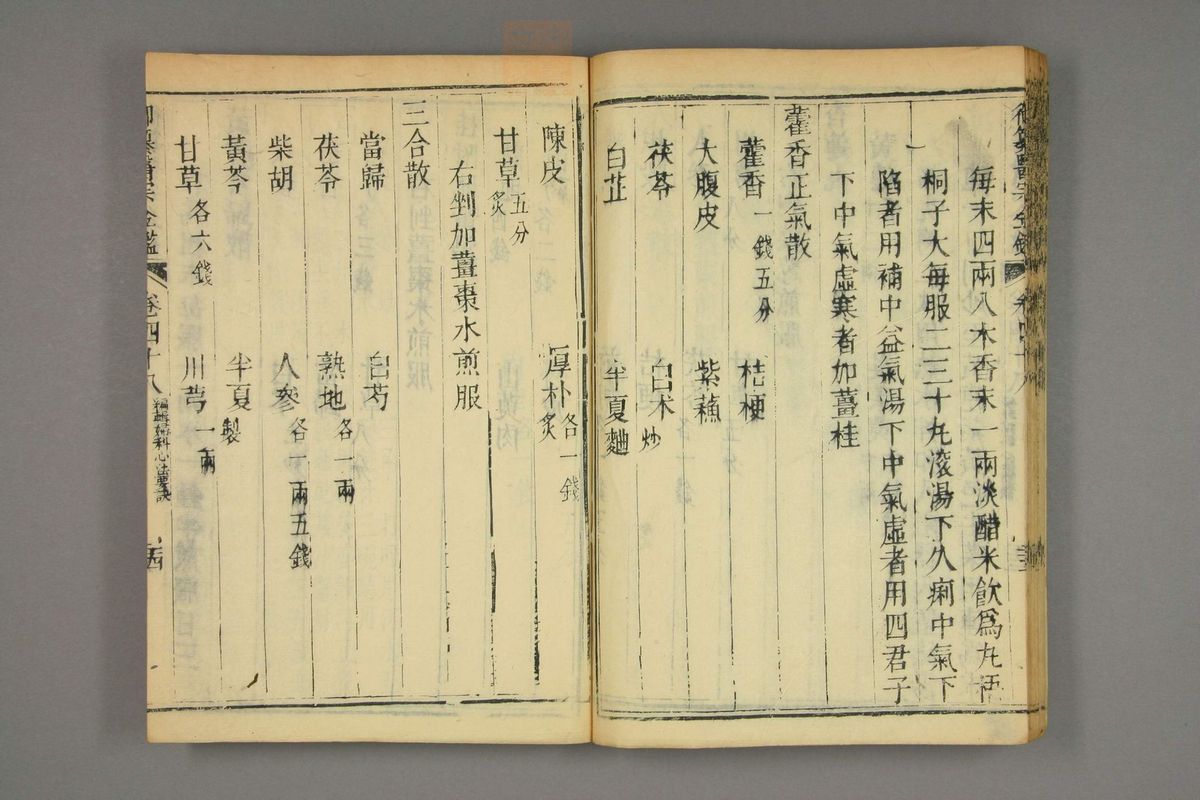 每末四兩入木香末一兩淡醋米飲爲丸梧
桐子大每服二三十丸滚湯下久痢中氣下
陷者用補中益氣湯下中氣虛者用四君子
下中氣虛寒者加薑桂
藿香正氣散
藿香一錢五分 桔梗
大腹皮 紫蘓
茯苓 白术炒
白芷 半夏麯
陳皮 厚朴炙各一錢
甘草炙五分
右剉加薑棗水煎服
三合散
當歸 白芍
茯苓 熟地各一兩
柴胡 人參各一兩五錢
黃芩 半夏製
甘草各六錢 川芎一兩
御纂醫宗金鑑 卷四十八 編輯婦科心法要訣